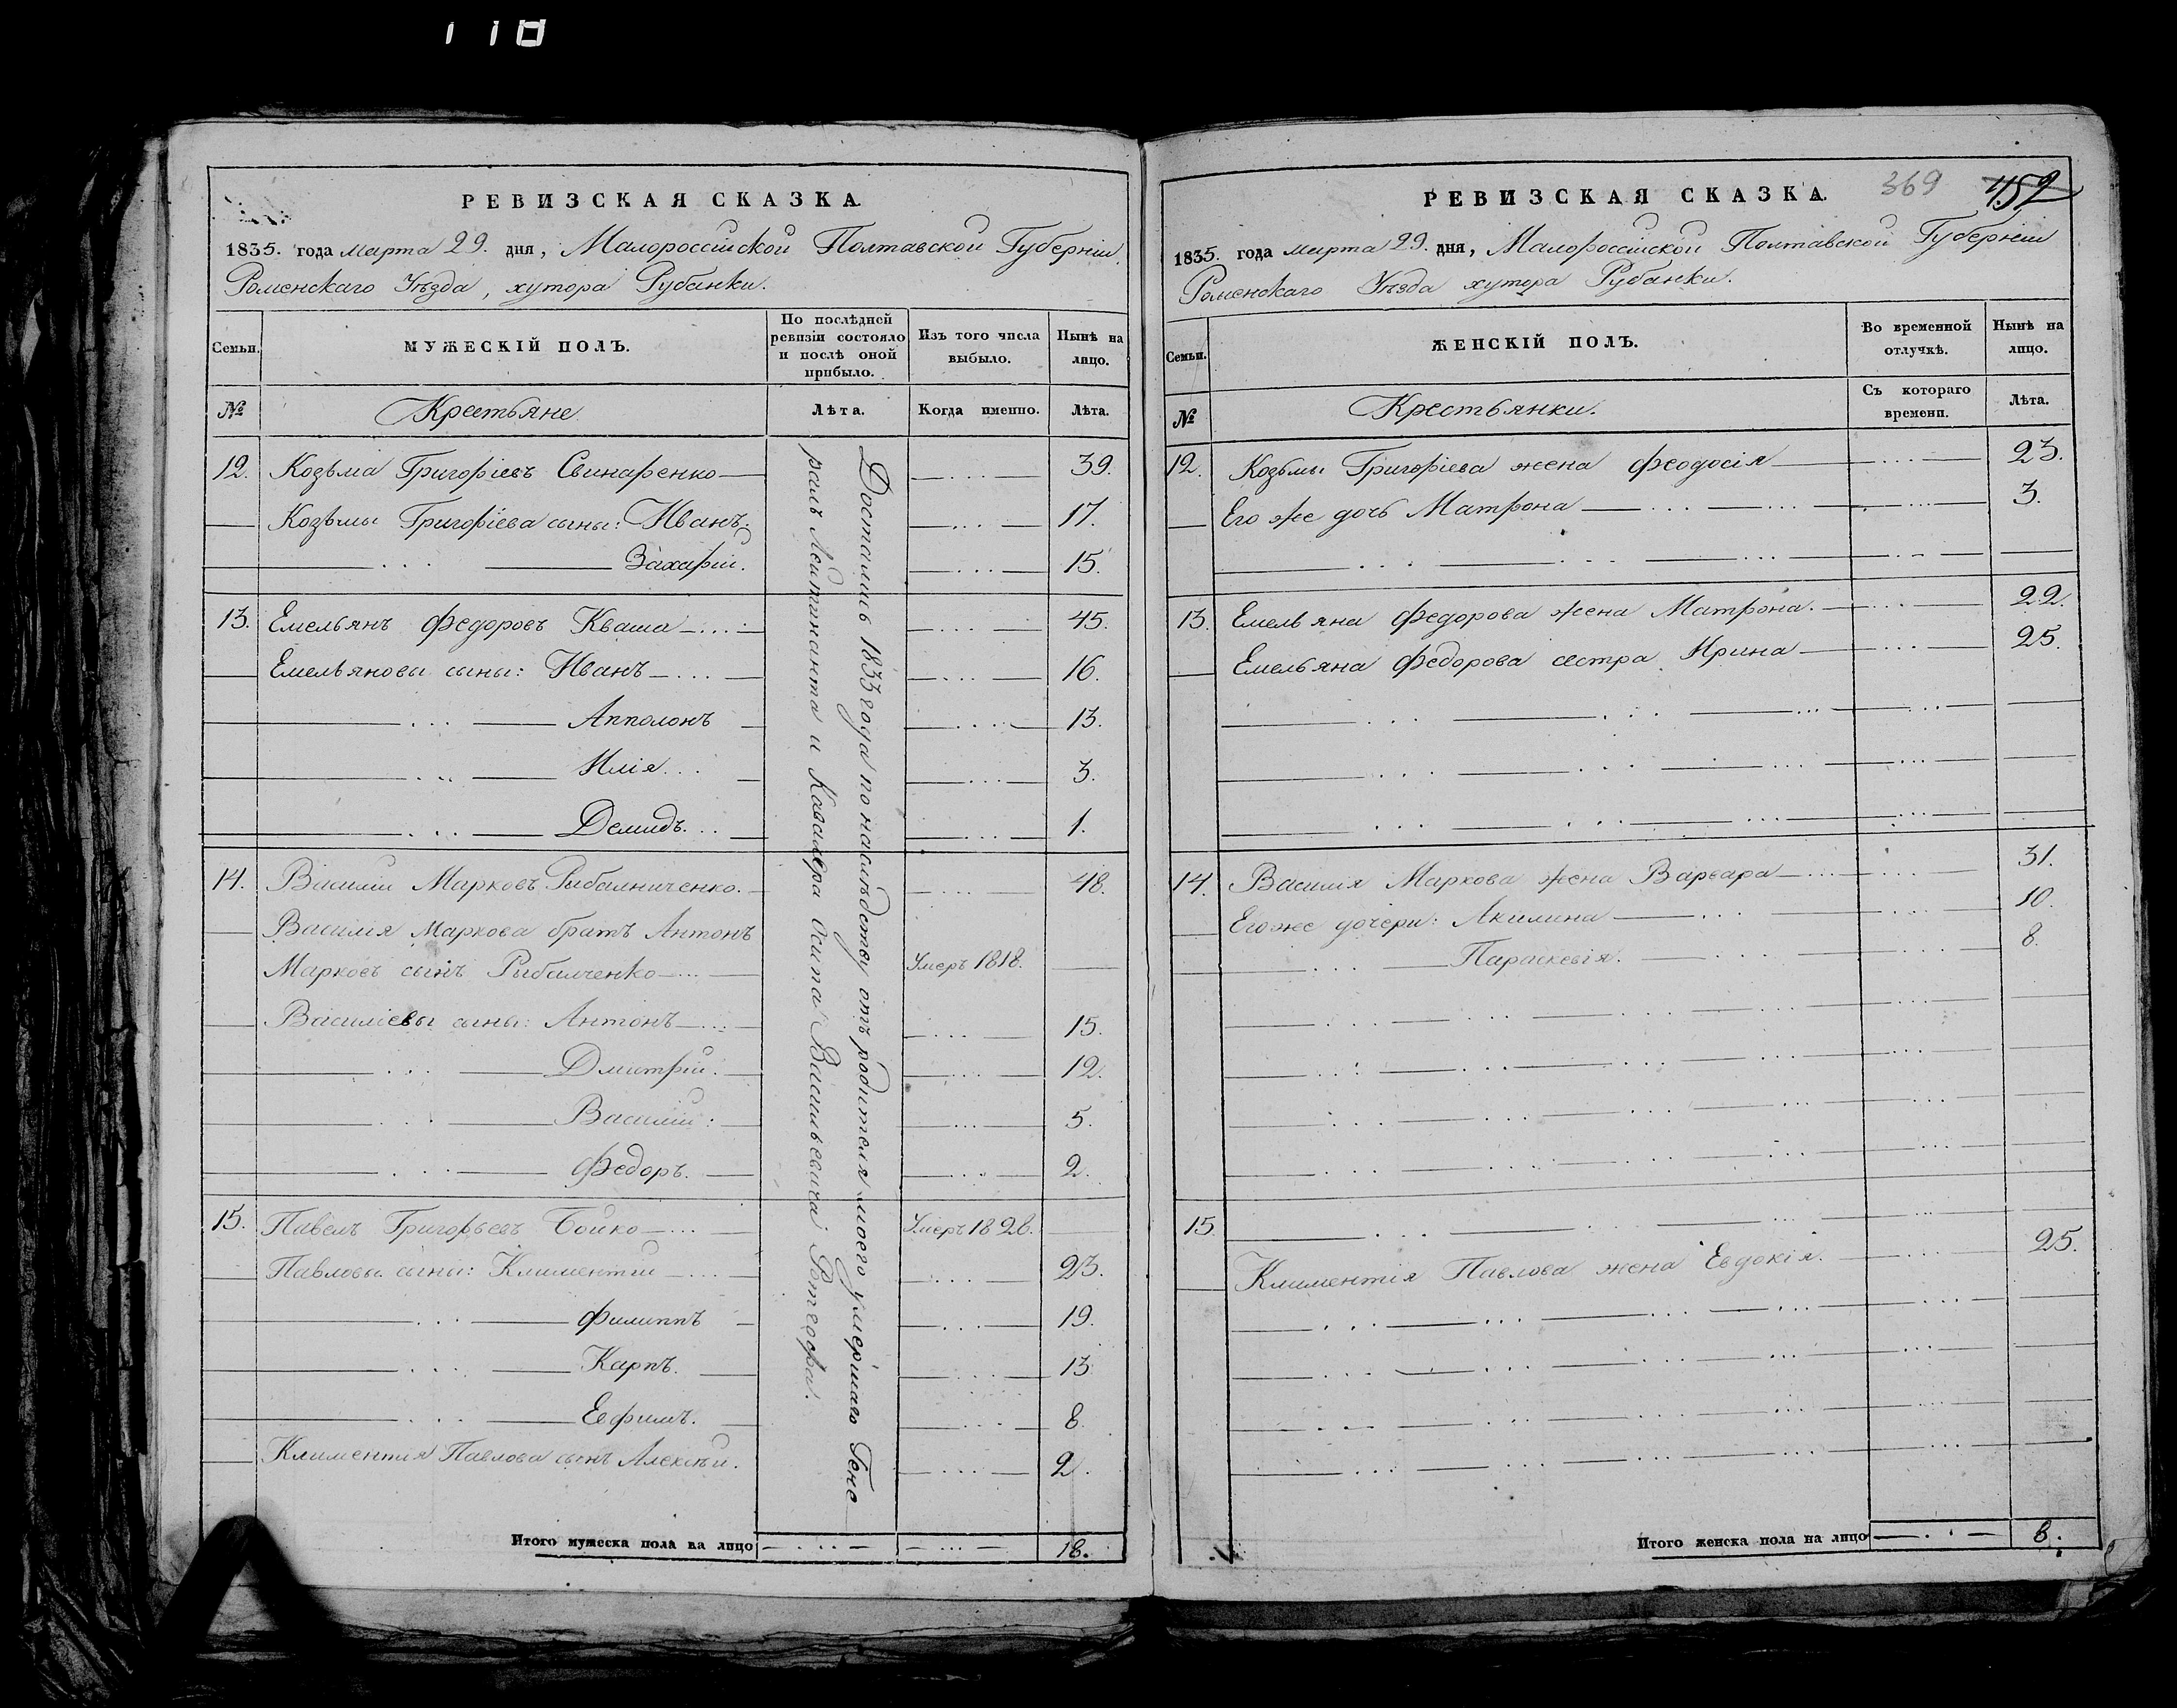 118
РЕВИЗСКАЯ СКАЗКА.
1835. года Марта 29. дня, Малороссійской Полтавской Губерніи,
Роменскаго Уѣзда, хутора Рубанки.
Семьи.
МУЖЕСКІЙ ПОЛЪ.
По послѣдней ревизіи состояло и послѣ оной прибыло.
Изъ того числа выбыло.
Нынѣ на лицо.
№
Крестьяне
Лѣта.
Когда именно.
Лѣта.
Достались 1833 года по наслѣдству отъ родителя моего умершаго Гене
ралъ Лейтенанта и Кавалера Осипа Васильевича
12. Козьма Григоріевъ Свинаренко 39.
Козьмы Григорiева сыны: Иванъ. 17.
Захарій. 15.
13. Емельянъ Федоровъ Кваша 45.
Емельяновы сыны: Иванъ 16.
Апполонъ 13.
Илія 3.
Демидъ. 1.
14. Василій Марковъ Рибалниченко. 48.
Василія Маркова братъ Антонъ
Марковъ сынъ Рибалченко Умеръ 1818.
Василіевы сыны: Антонъ 15.
Дмитрій. 12.
Василій: 5.
Федоръ. 2.
15. Павелъ Григорьевъ Бойко Умеръ 1826.
Павловы сыны: Климентий 23.
Филиппъ 19.
Карпъ. 13
Евфимъ. 8.
Климентия Павлова сынъ Алексѣй. 2.
Итого мужеска пола на лицо 18.
РЕВИЗСКАЯ СКАЗКА.
369
452
1835. года Марта 29. дня, Малороссійской Полтавской Губерніи
Роменскаго Уѣзда хутора Рубанки.
Семьи.
ЖЕНСКІЙ ПОЛЪ.
Во временной отлучкѣ.
Нынѣ на лицо.
№
Крестьянки.
Съ котораго времени.
Лѣта.
12. Козьмы Григоріева жена Феодосія 23.
Его же дочь Матрона 3.
13. Емельяна Федорова жена Матрона. 22.
Емельяна Федорова сестра Ирина 25.
14. Василія Маркова жена Варвара 31.
Его же дочери: Акилина 10.
Параскевія. 8.
15
Климентія Павлова жена Евдокія. 25.
Итого женска пола на лицо 8.